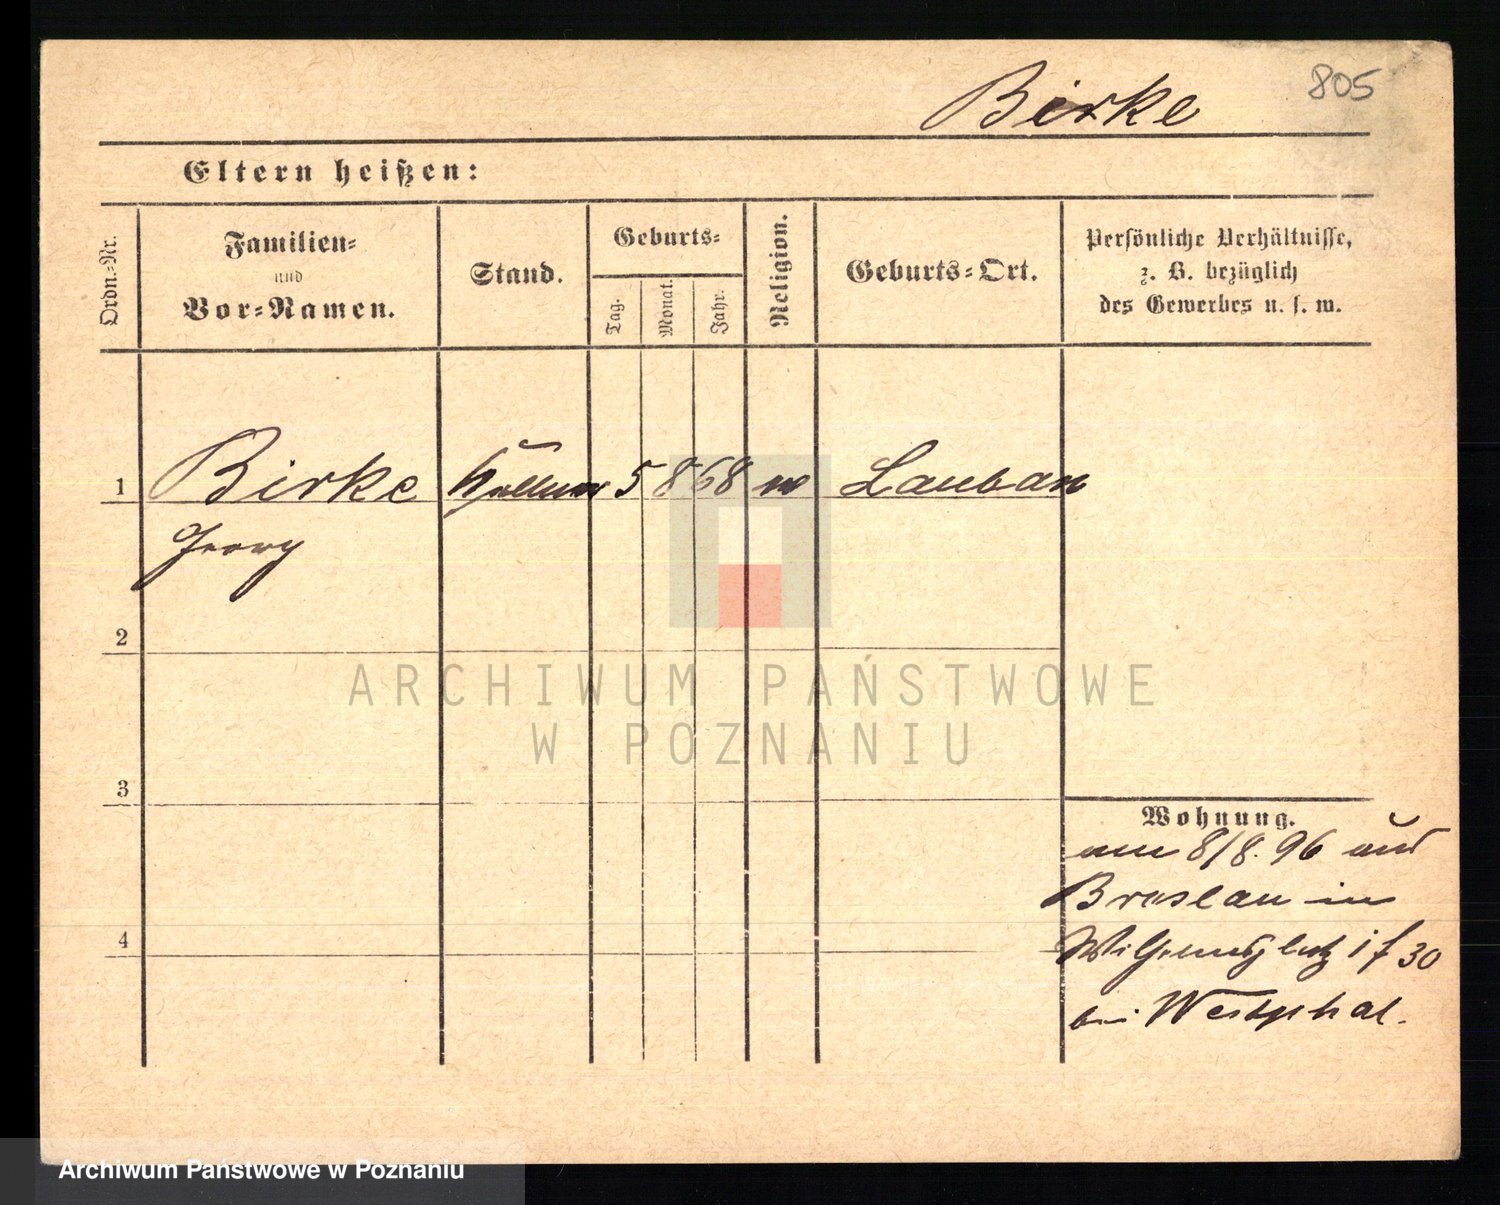 805
Birke
Eltern heißen:
Ordn.-Nr.
Familien-
und
Vor-Namen.
Stand.
Geburts-
Tag.
Monat.
Jahr.
Religion.
Geburts-Ort.
Persönliche Verhältnisse,
z. B. bezüglich
des Gewerbes u. s. w.
1 Birke 5 8 68 Lauban
Georg
2
3
4
Wohnung.
8/8. 96 aus
Breslau in
Wilhelmsplatz 30
bei Westphal.
ARCHIWUM PAŃSTWOWE
W POZNANIU
Archiwum Państwowe w Poznaniu